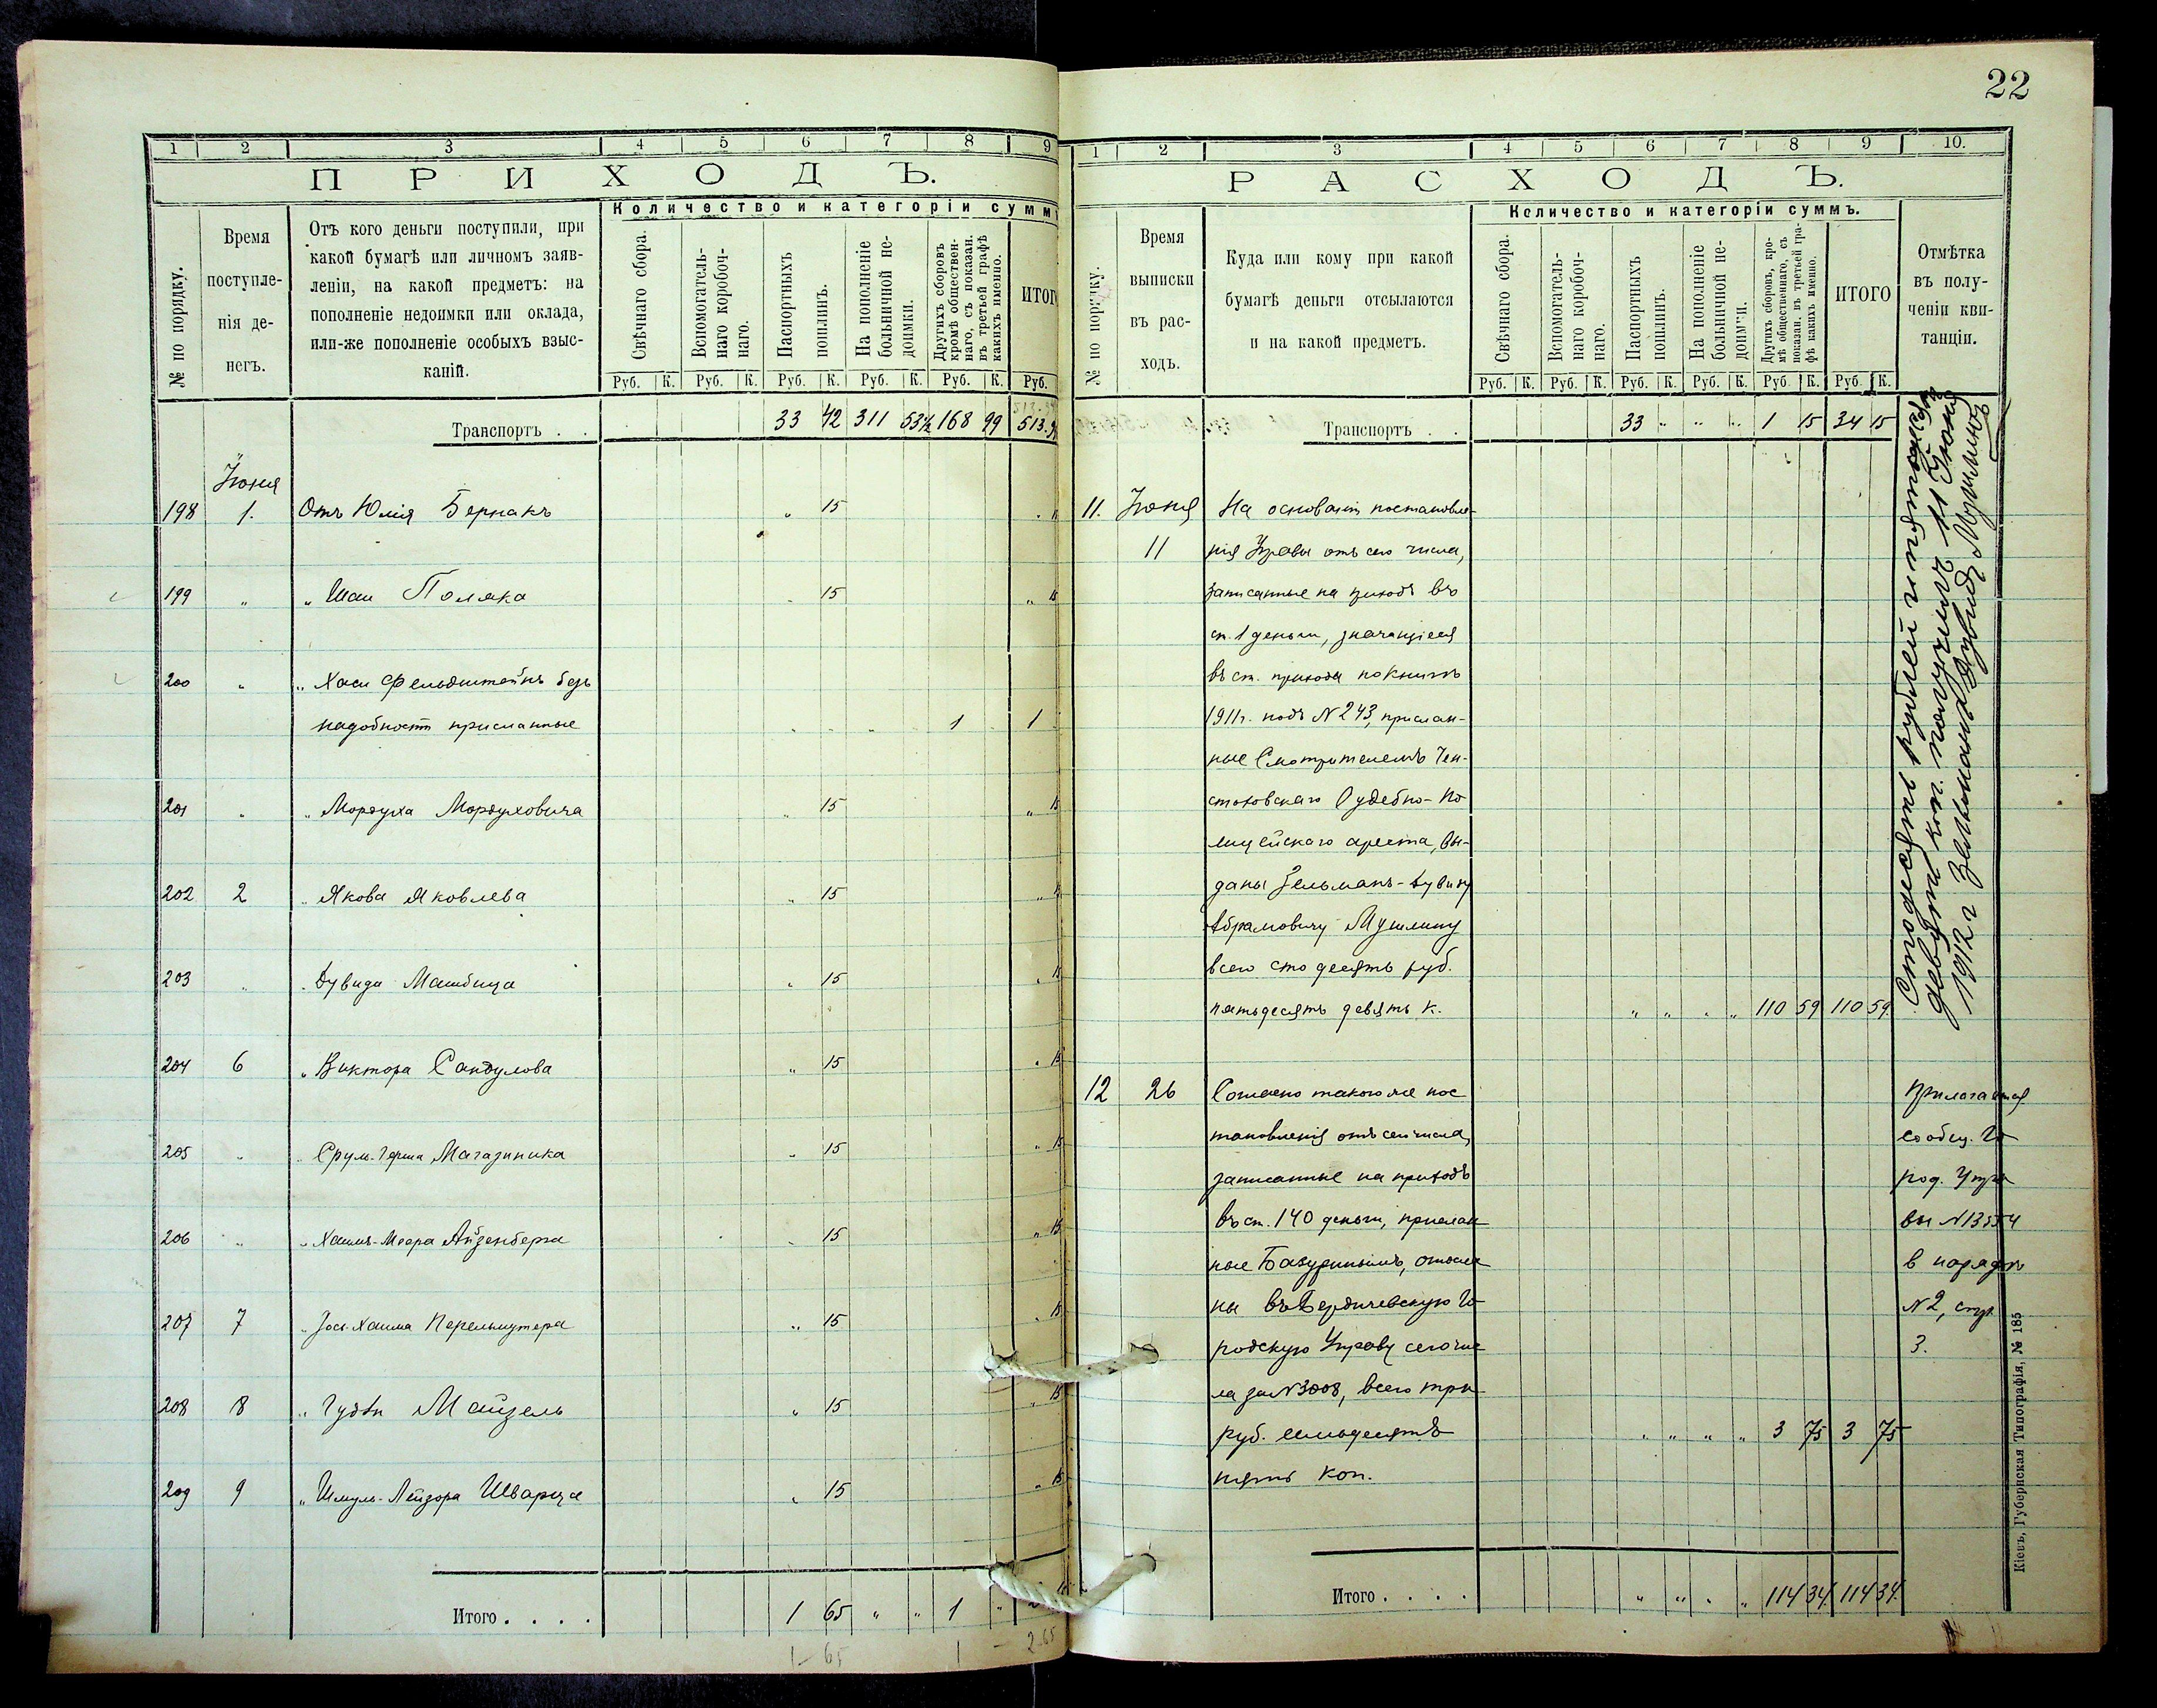 22
1 2 3 4 5 6 7 8 9
ПРИХОДЪ.
№ по порядку.
Время поступле-нія де-негъ.
Отъ кого деньги поступили, при
какой бумагѣ или личномъ заяв-
леніи, на какой предметъ: на
пополненіе недоимки или оклада,
или-же пополненіе особыхъ взыс-
каній.
Количество и категоріи суммъ
Свѣчнаго сбора.
Вспомогатель-
наго коробоч-
наго.
Паспортныхъ
пошлинъ.
На пополненіе
больничной не-
доимки.
Другихъ сборовъ
кромѣ обществен-
наго, съ показан.
въ третьей графѣ
какихъ именно.
ИТОГ
Руб. К. Руб. К. Руб. К. Руб. К. Руб. К. Руб.
Транспортъ . . 33 42 311 53½ 168 99 513.9
Іюня
198 1. Отъ Юлія Бернакъ " 15
199 " " Шаи Поляка 15 " 15
200 " " Хаси Фельдштейнъ безъ
надобности присланные 1 1
201 " " Мордуха Мордуховича " 15 " 15
202 2 " Якова Яковлева " 15
203 " " Дувида Машбица " 15
204 6 " Виктора Сандулова " 15 " 15
205 " " Сруль-Герша Магазиника " 15 " 15
206 " " Хаимъ-Меера Айзенберга " 15 " 15
207 7 " Іось-Хаима Перельмутера " 15 " 15
208 8 " Гудли Майзель " 15 " 15
209 9 " Шмуль-Лейзора Шварца " 15 " 15
Итого . . . . 1 65 " " 1 "
1 – 65 1 – 2-65
1 2 3 4 5 6 7 8 9 10.
РАСХОДЪ.
№ по порядку.
Время
выписки
въ рас-
ходъ.
Куда или кому при какой
бумагѣ деньги отсылаются
и на какой предметъ.
Количество и категоріи суммъ.
Свѣчнаго сбора.
Вспомогатель-
наго коробоч-
наго.
Паспортныхъ
пошлинъ.
На пополненіе
больничной не-
доимки.
Другихъ сборовъ, кро-
мѣ общественнаго, съ
показан. въ третьей гра-
фѣ какихъ именно.
ИТОГО
Отмѣтка
въ полу-
ченіи кви-
танціи.
Руб. К. Руб. К. Руб. К. Руб. К. Руб. К. Руб. К.
Транспортъ . . 33 " " " 1 15 34 15
11. Іюня На основаніи постановле-
11 нія Управы отъ сего числа,
записанные на приходъ въ
ст. 1 деньги, значащіеся
въ ст. прихода по книгѣ
1911 г. подъ № 243, прислан-
ные Смотрителемъ Чен-
стоховскаго Судебно-По
лицейскаго ареста, вы-
даны Зельманъ-Дувиду
Абрамовичу Мушлину
всего сто десять руб.
пятьдесятъ девять к. " " " " 110 59 110 59
Стодесять рублей и пятьдесят
девять коп. получилъ 11 Іюня
1912 г Зельманъ Дувидъ Мушлинъ
12 26 Согласно такого же пос
тановленія отъ сего числа,
записанные на приходъ
въ ст. 140 деньги, прислан
ные Базуринымъ, отосла
ны въ Бердичевскую Го
родскую Управу сего чис
ла за № 3008, всего три
руб. семьдесятъ " " " " 3 75 3 75
пять коп.
Прилогается
сообщ. Го
род. Упра
вы № 13554
в нарядѣ
№ 2, стр.
3.
Итого . . . . " " " " 114 34 114 34
Кіевъ, Губернская Типографія, № 185